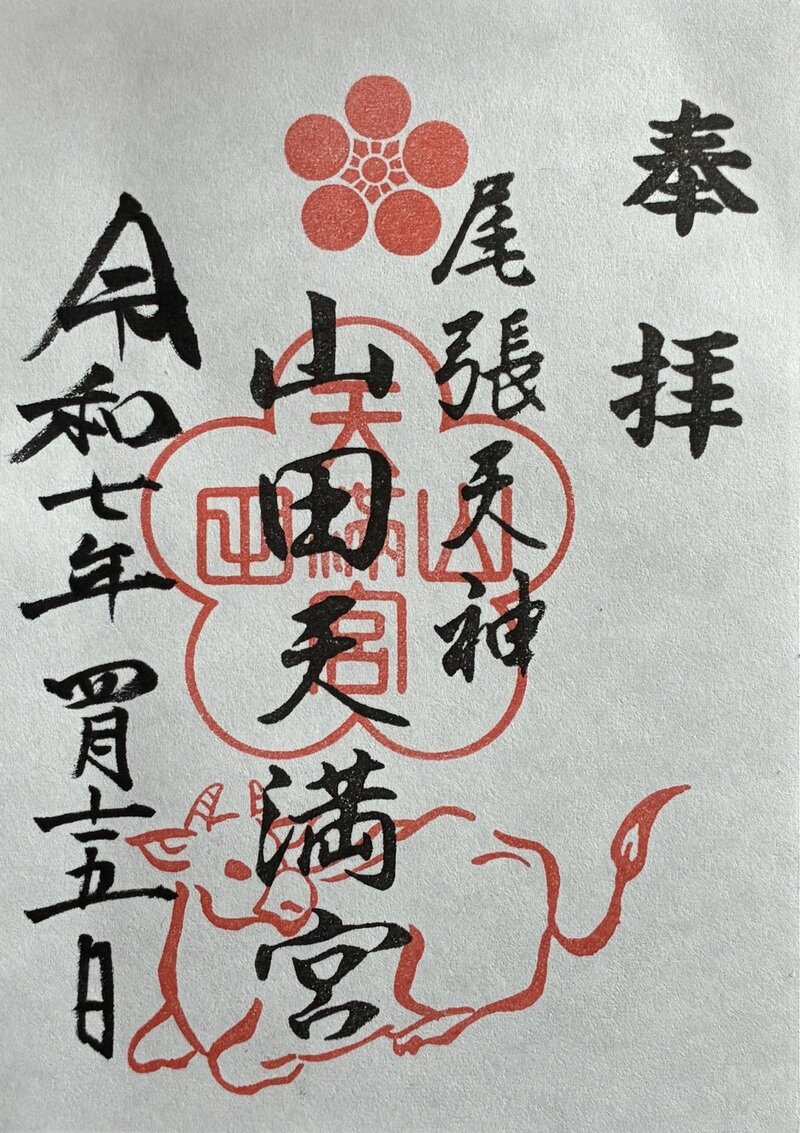 奉拝
尾張天神
山田天満宮
山田
天満宮
令和七年四月十五日